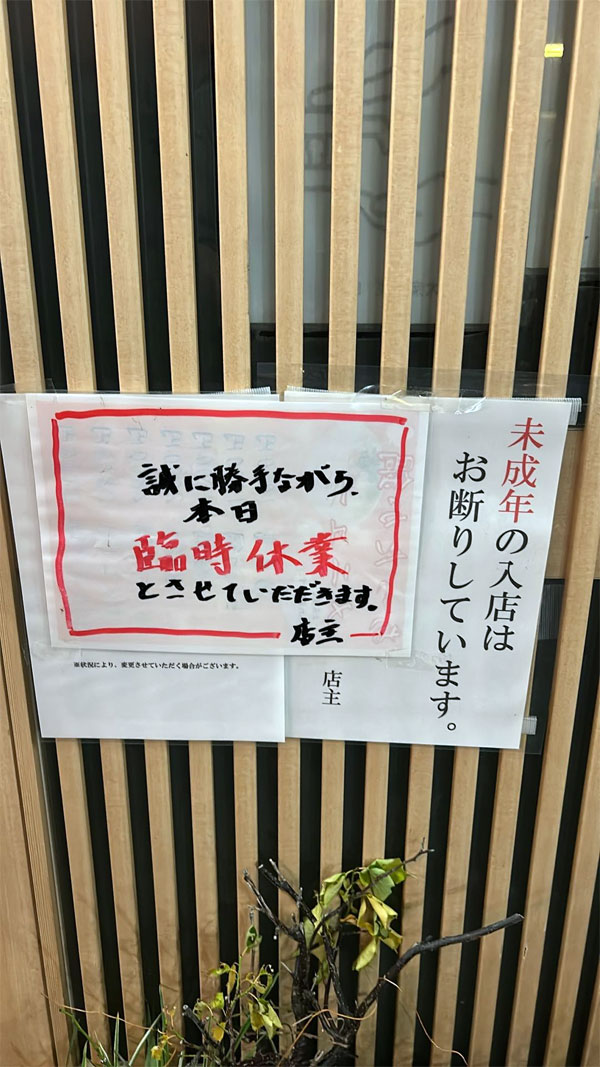 誠に勝手ながら、
本日
臨時休業
とさせていだだきます。
店主
※状況により、変更させていただく場合がございます。
未成年の入店は
お断りしています。
店主